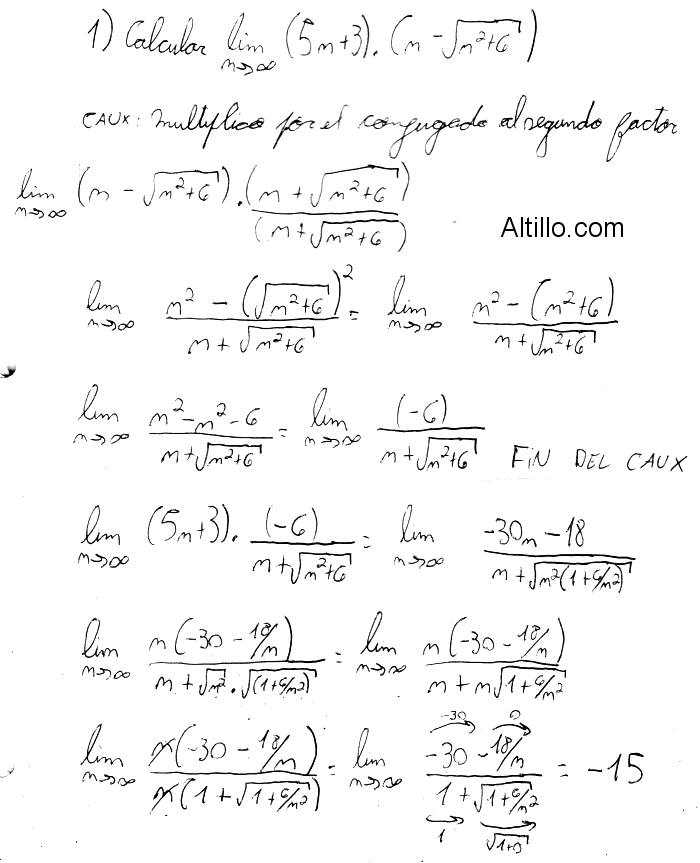 1) Calcular lim n→∞ (5n+3).(n - √(n²+6))
CAUX: multiplico por el conjugado al segundo factor
lim n→∞ (n - √(n²+6)) . (n + √(n²+6)) / (n + √(n²+6))
Altillo.com
lim n→∞ (n² - (√(n²+6))²) / (n + √(n²+6)) = lim n→∞ (n² - (n²+6)) / (n + √(n²+6))
lim n→∞ (n² - n² - 6) / (n + √(n²+6)) = lim n→∞ (-6) / (n + √(n²+6)) FIN DEL CAUX
lim n→∞ (5n+3) . (-6) / (n + √(n²+6)) = lim n→∞ (-30n - 18) / (n + √(n²(1+6/n²)))
lim n→∞ n(-30 - 18/n) / (n + √n² . √(1+6/n²)) = lim n→∞ n(-30 - 18/n) / (n + n√(1+6/n²))
-30 0
lim n→∞ n(-30 - 18/n) / n(1 + √(1+6/n²)) = lim n→∞ (-30 - 18/n) / (1 + √(1+6/n²)) = -15
1 √(1+0)